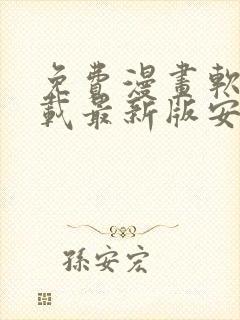 免費漫畫軟
載最新版安
孫安宏